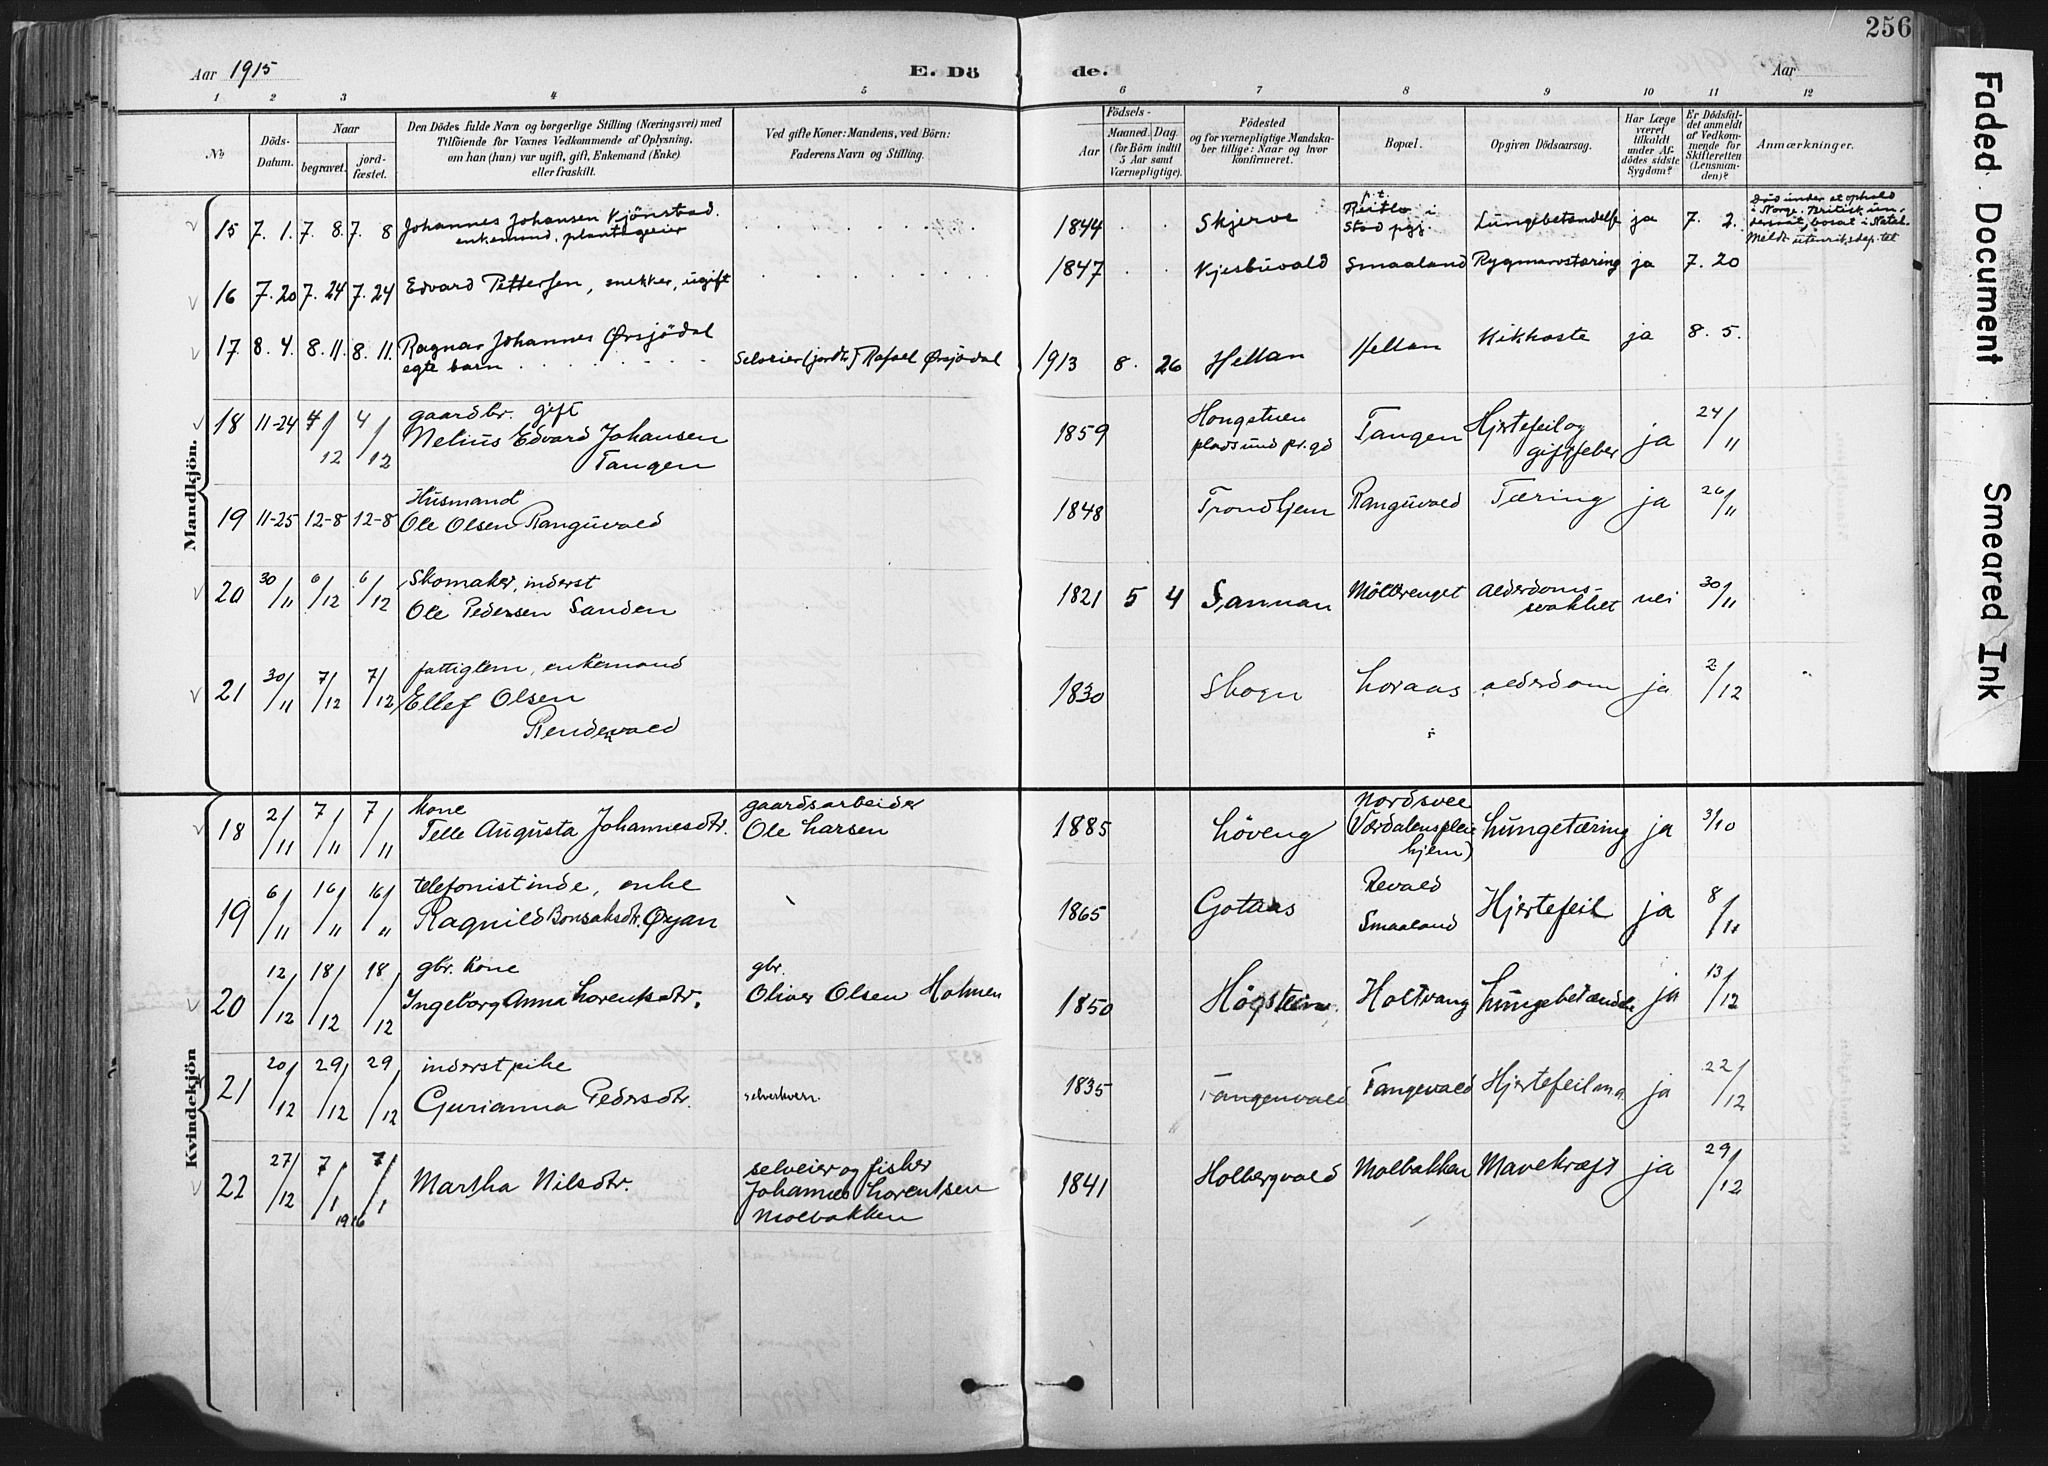 256
Aar 1915
E. Dö de.
Aar
1 2 3 4 5 6 7 8 9 10 11 12
No
Döds-Datum.
Naar
begravet.
jord-fæstet.
Den Dödes fulde Navn og borgerlige Stilling (Næringsvei) med
Tilföiende for Voxnes Vedkommende af Oplysning,
om han (hun) var ugift, gift, Enkemand (Enke)
eller fraskilt.
Ved gifte Koner: Mandens, ved Börn:
Faderens Navn og Stilling.
Födsels-
Aar
Maaned. Dag.
(for Börn indtil
5 Aar samt
Værnepligtige).
Födested
og for værnepligtige Mandska-
ber tillige: Naar og hvor
konfirmeret.
Bopæl.
Opgiven Dödsaarsag.
Har Læge
været
tilkaldt
under Af-
dödes sidste
Sygdom?
Er Dödsfal-
det anmeldt
af Vedkom-
mende for
Skifteretten
(Lensman-
den)?
Anmærkninger.
Mandkjön.
15 7. 1. 7. 8. 7. 8 Johannes Johansen Kjönstad.
enkemand, plantageeier
1844 Skjerve
p.t.
Reitlo i
Stod pgj.
Lungebetændelse ja 7. 2.
Död under et ophold
i Norge. Britisk un-
dersaat, bosat i Natal.
Meldt utenriksdep.tet
16 7. 20 7. 24 7. 24 Edvard Pettersen, snekker, ugift
1847 Kjesbuvald Smaaland Rygmarvstæring ja 7. 20
17 8. 4. 8. 11. 8. 11. Ragnar Johannes Ørsjödal
egte barn
Selveier (jordbr.) Rafael Ørsjödal
1913 8. 26 Hellan Hellan Kikhoste ja 8. 5.
18 11-24 4/12 4/12 gaardbr. gift
Nelius Edvard Johansen
Tangen
1859 Hongstuen
plads und pr.gd
Tangen Hjertefeil og
giftfeber
ja 24/11
19 11-25 12-8 12-8 Husmand
Ole Olsen Ranguvald
1848 Trondhjem Ranguvald Tæring ja 26/11
20 30/11 6/12 6/12 Skomaker, inderst
Ole Pedersen Sanden
1821 5 4 Sannan Möllerenget Alderdoms-
svakhet
nei 30/11
21 30/11 7/12 7/12 fattiglem, enkemand
Ellef Olsen
Rendevald
1830 Skogn Loraas alderdom ja 2/12
Kvindekjön
18 2/11 7/11 7/11 kone
Telle Augusta Johannesdtr.
gaardsarbeider
Ole Larsen
1885 Löveng
Nordsvee
(Værdalenspleie
hjem)
Lungetæring ja 3/10
19 6/11 16/11 16/11 telefonistinde, enke
Ragnild Bonsaksdtr. Øyan
1865 Gotaas
Revald
Smaaland
Hjertefeil ja 8/11
20 12/12 18/12 18/12 gbr. kone
Ingeborg Anna Lorentsdtr.
gbr.
Oliver Olsen Holmen
1850 Högstein Holtvang Lungebetændelse ja 13/12
21 20/12 29/12 29/12 inderst pike
Gurianna Pedersdtr.
selverhverv.
1835 Tangenvald Tangevald Hjertefeil m.a. ja 22/12
22 27/12 7/1 1916 7/1 Martha Nilsdtr.
selveier og fisker
Johannes Lorentsen
Molbakken
1841 Holbergvald Molbakken Mavekræft ja 29/12
Faded Document
Smeared Ink